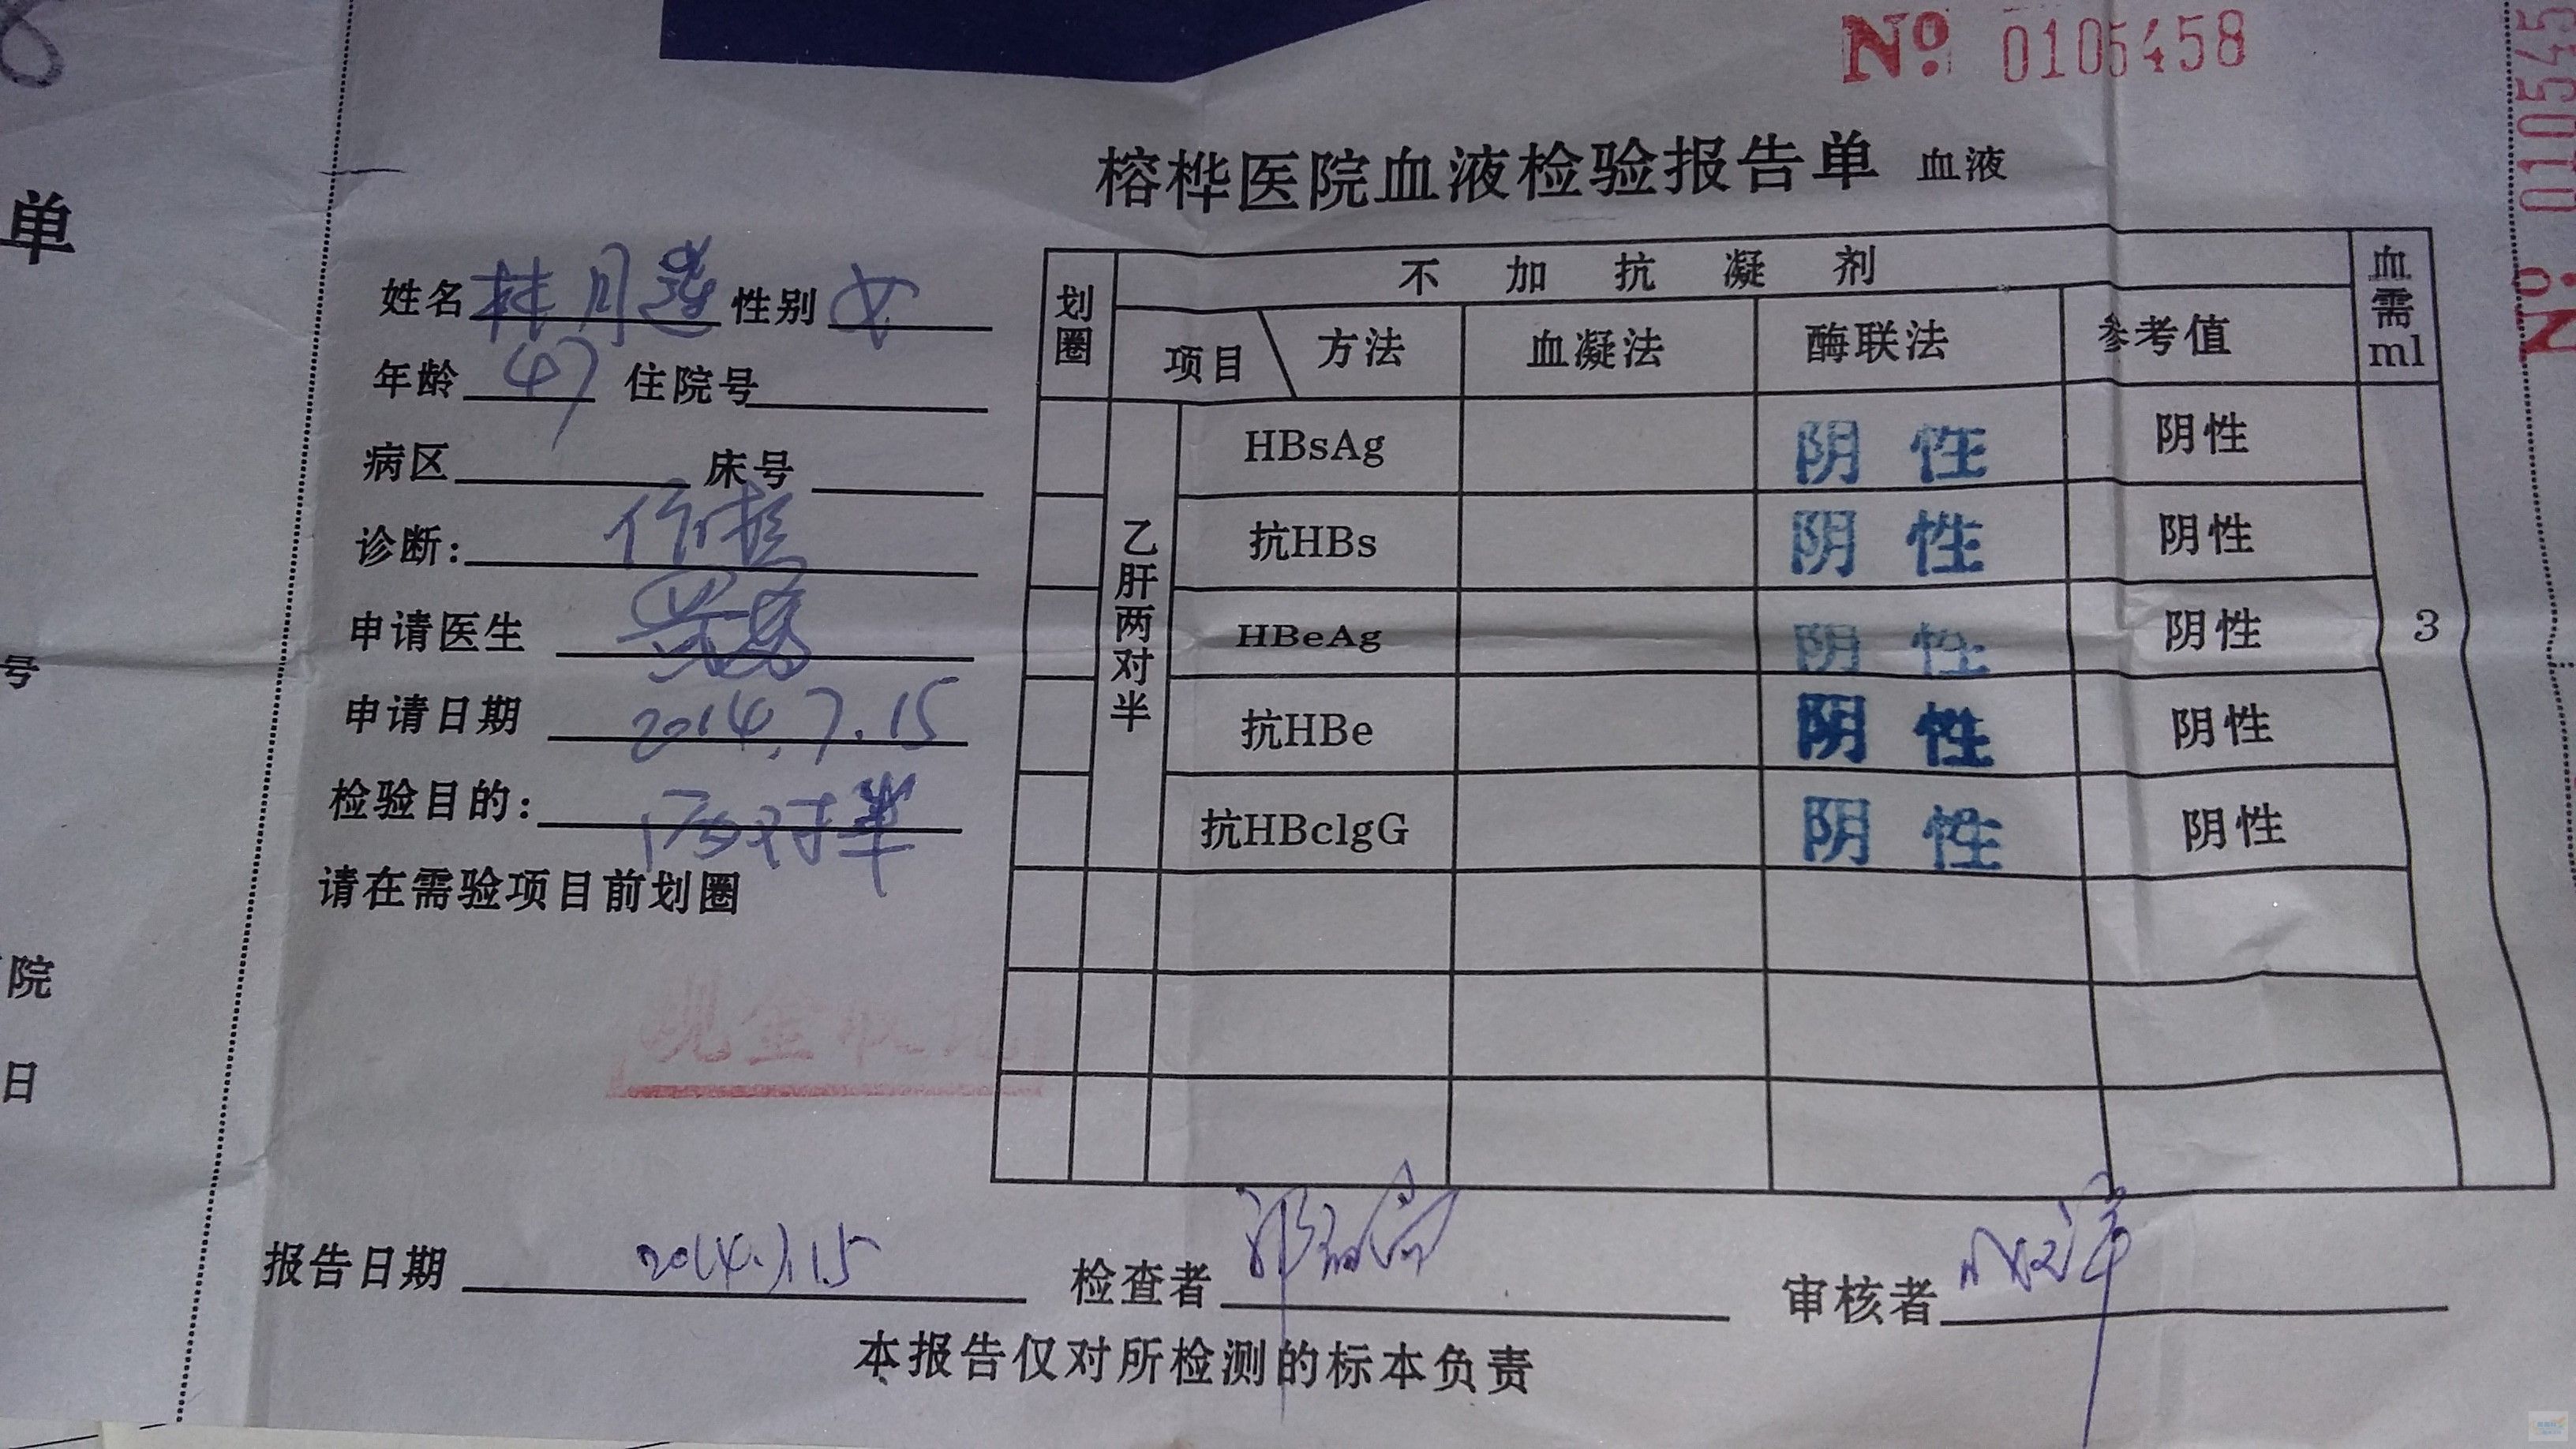 № 0105458
榕桦医院血液检验报告单 血液
单
姓名 林月莲 性别 女
年龄 47 住院号
病区 床号
诊断：
申请医生
申请日期 2014.7.15
检验目的： 两对半
请在需验项目前划圈
号
院
日
划圈 不加抗凝剂 血需ml
项目 方法 血凝法 酶联法 参考值
乙肝两对半
HBsAg 阴性 阴性
抗HBs 阴性 阴性
HBeAg 阴性 阴性
抗HBe 阴性 阴性
抗HBclgG 阴性 阴性
3
现金收讫
报告日期 2014.7.15 检查者 审核者
本报告仅对所检测的标本负责
№ 010545